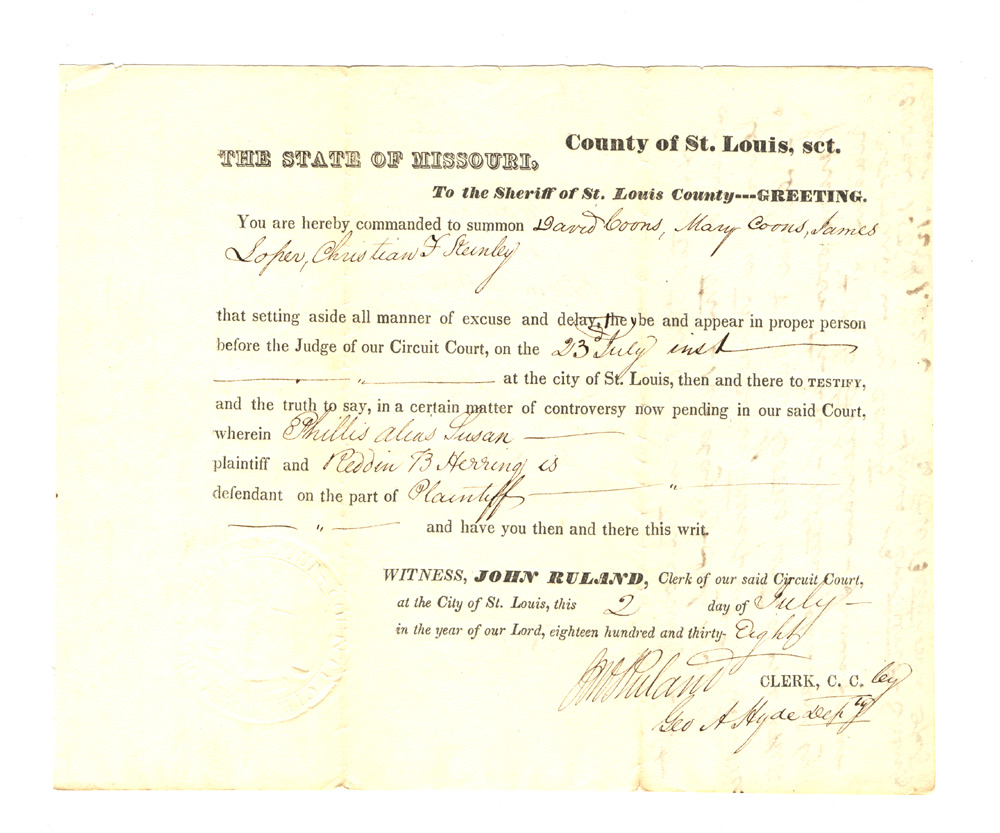 THE STATE OF MISSOURI, County of St. Louis, sct.
To the Sheriff of St. Louis County---GREETING.
You are hereby commanded to summon David Coons, Mary Coons, James
Loper, Christian F Steinley
that setting aside all manner of excuse and delay, they be and appear in proper person
before the Judge of our Circuit Court, on the 23d July inst
" at the city of St. Louis, then and there to TESTIFY,
and the truth to say, in a certain matter of controversy now pending in our said Court,
wherein Phillis alias Susan
plaintiff and Reddin B Herring is
defendant on the part of Plaintiff "
" and have you then and there this writ.
WITNESS, JOHN RULAND, Clerk of our said Circuit Court,
at the City of St. Louis, this 2 day of July
in the year of our Lord, eighteen hundred and thirty- Eight
Jno Ruland CLERK, C. C. by
Geo A Hyde Depty